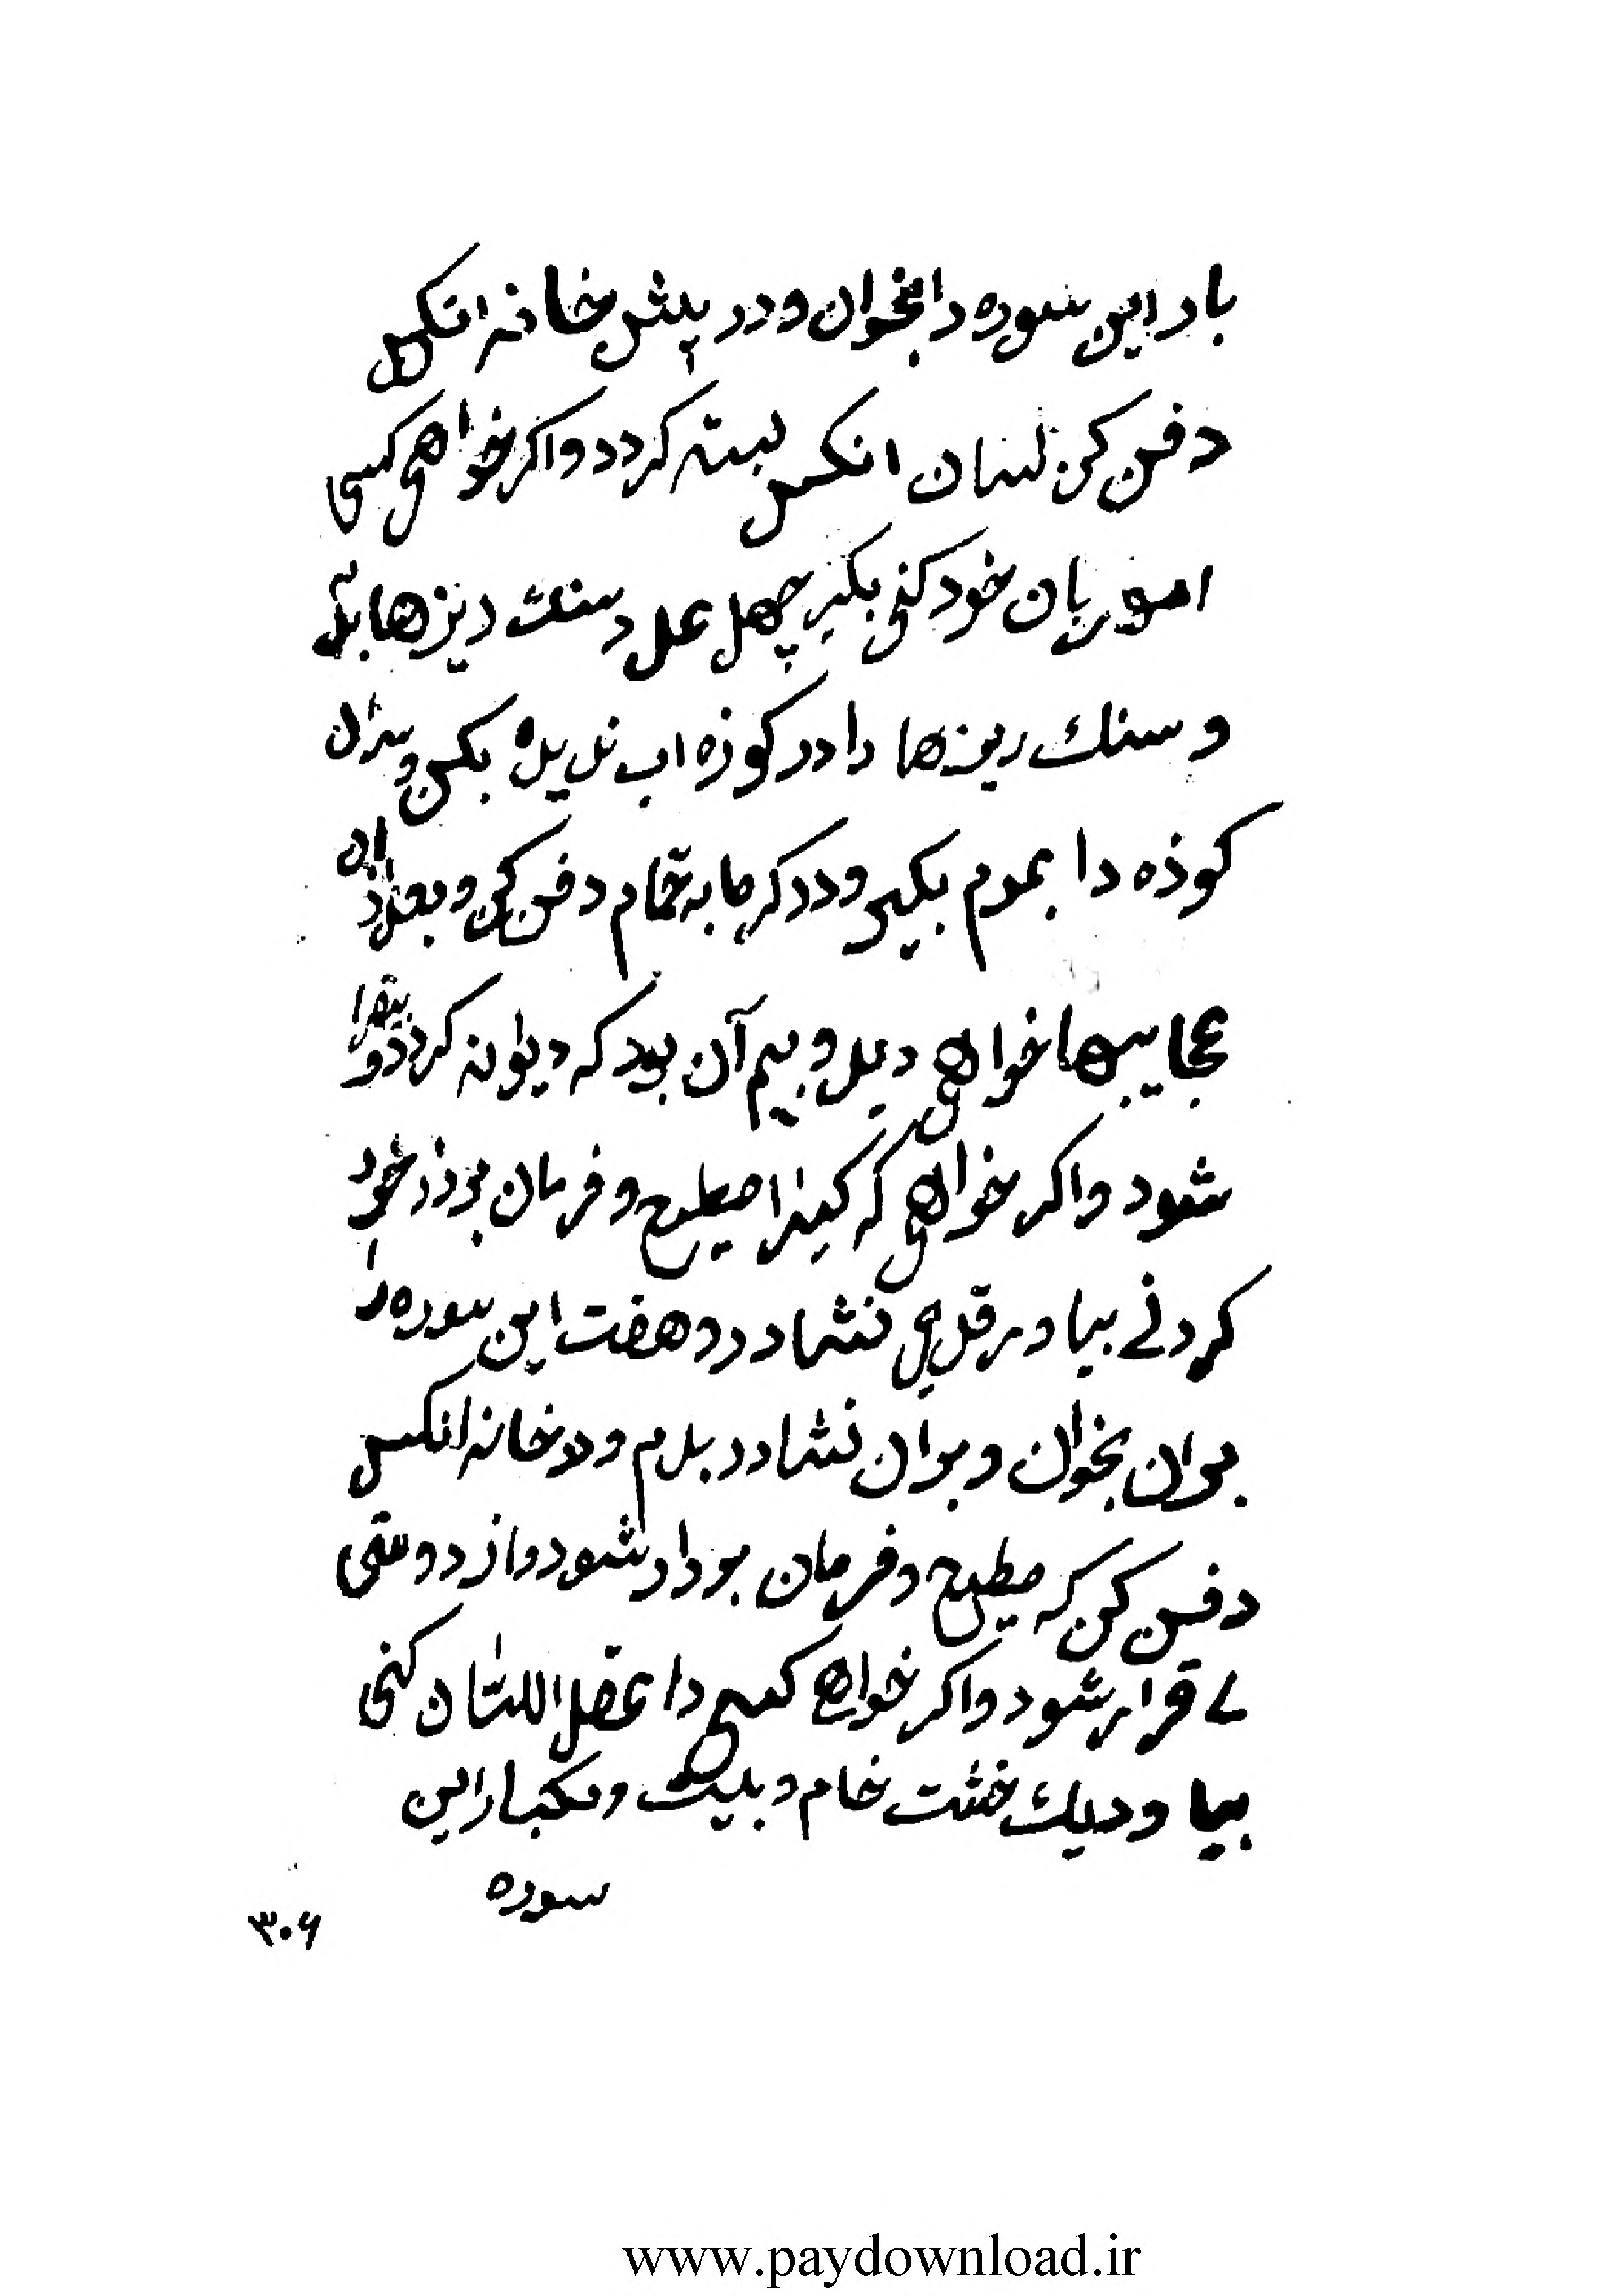 بار این سوره را بخوان و در پیش خانه انکس
دفن کن لسان انکس بسته کردد واکر خواهی کسی
خود کنی بکیر چهل عدد سنك ریزها
و سنك ریزها را در کوزه اب ندیده بکن و سران
کوزه را بموم بکیر و در کرمابه حمام دفن کن و بعد از ان
عجایبها خواهی دید و بیم آن بود که دیوانه کردد و
شود واکر خواهی که کسیرا مطیع و فرمان بردار خود
کردنی بیاور قدری نشادر و هفت این سوره را
بران بخوان و بران نشادر بدم و در خانه انکس
دفن کن که مطیع و فرمان بردار شود و از دوستی
بی قرار شود واکر خواهی کسی را عقد اللسان کنی
بیاور یك خشت خام و یکبار این
سوره
۳۰۶
www.paydownload.ir